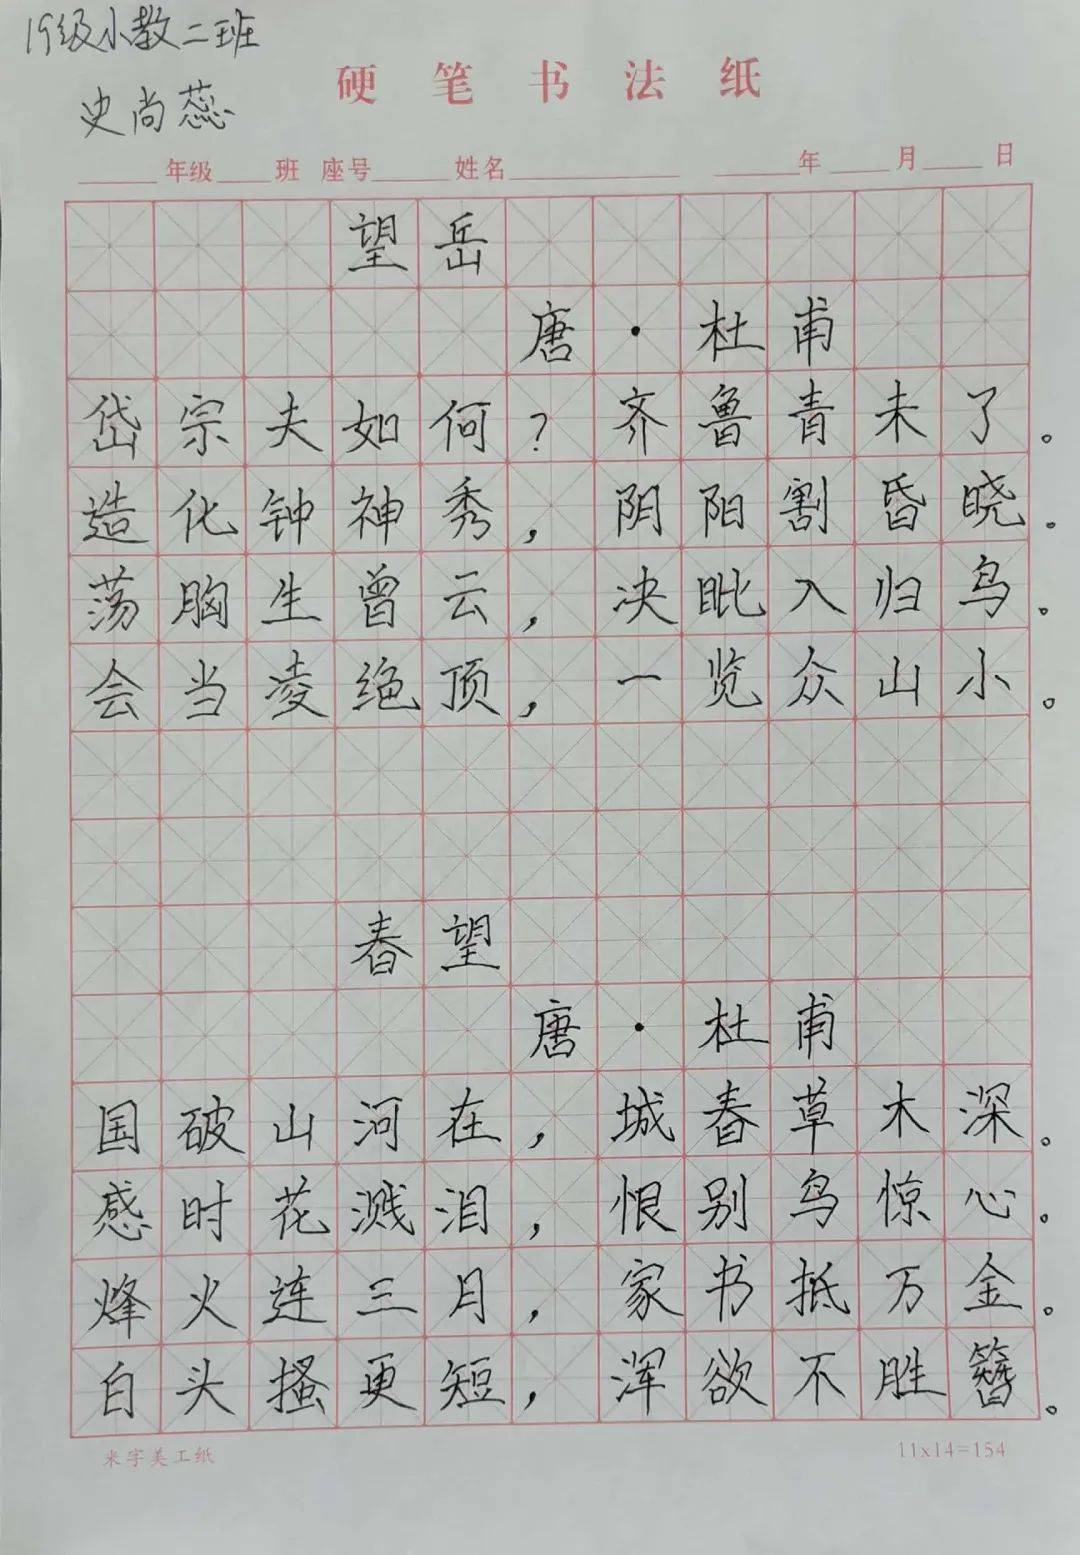 19级小教二班
史尚蕊
硬笔书法纸
年级 班 座号 姓名 年 月 日
望岳
唐·杜甫
岱宗夫如何？齐鲁青未了。
造化钟神秀，阴阳割昏晓。
荡胸生曾云，决眦入归鸟。
会当凌绝顶，一览众山小。
春望
唐·杜甫
国破山河在，城春草木深。
感时花溅泪，恨别鸟惊心。
烽火连三月，家书抵万金。
白头搔更短，浑欲不胜簪。
米字美工纸 11x14=154